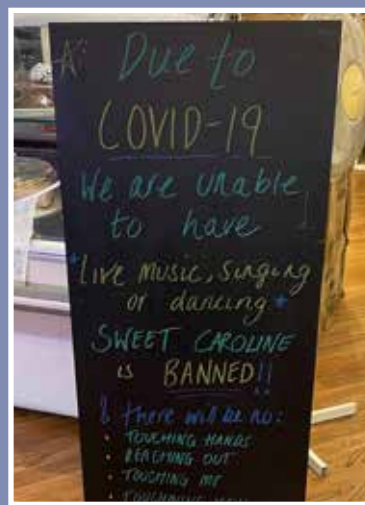 Due to
COVID-19
We are unable
to have
*Live music, singing
or dancing *
SWEET CAROLINE
is BANNED!!
& there will be no:
• TOUCHING HANDS
• REACHING OUT
• TOUCHING ME